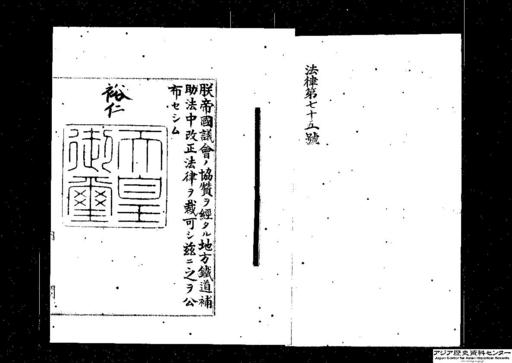 法律第七十五號
朕帝國議會ノ協贊ヲ經タル地方鐵道補
助法中改正法律ヲ裁可シ茲ニ之ヲ公
布セシム
裕仁
天皇
御璽
アジア歴史資料センター
Japan Center for Asian Historical Records